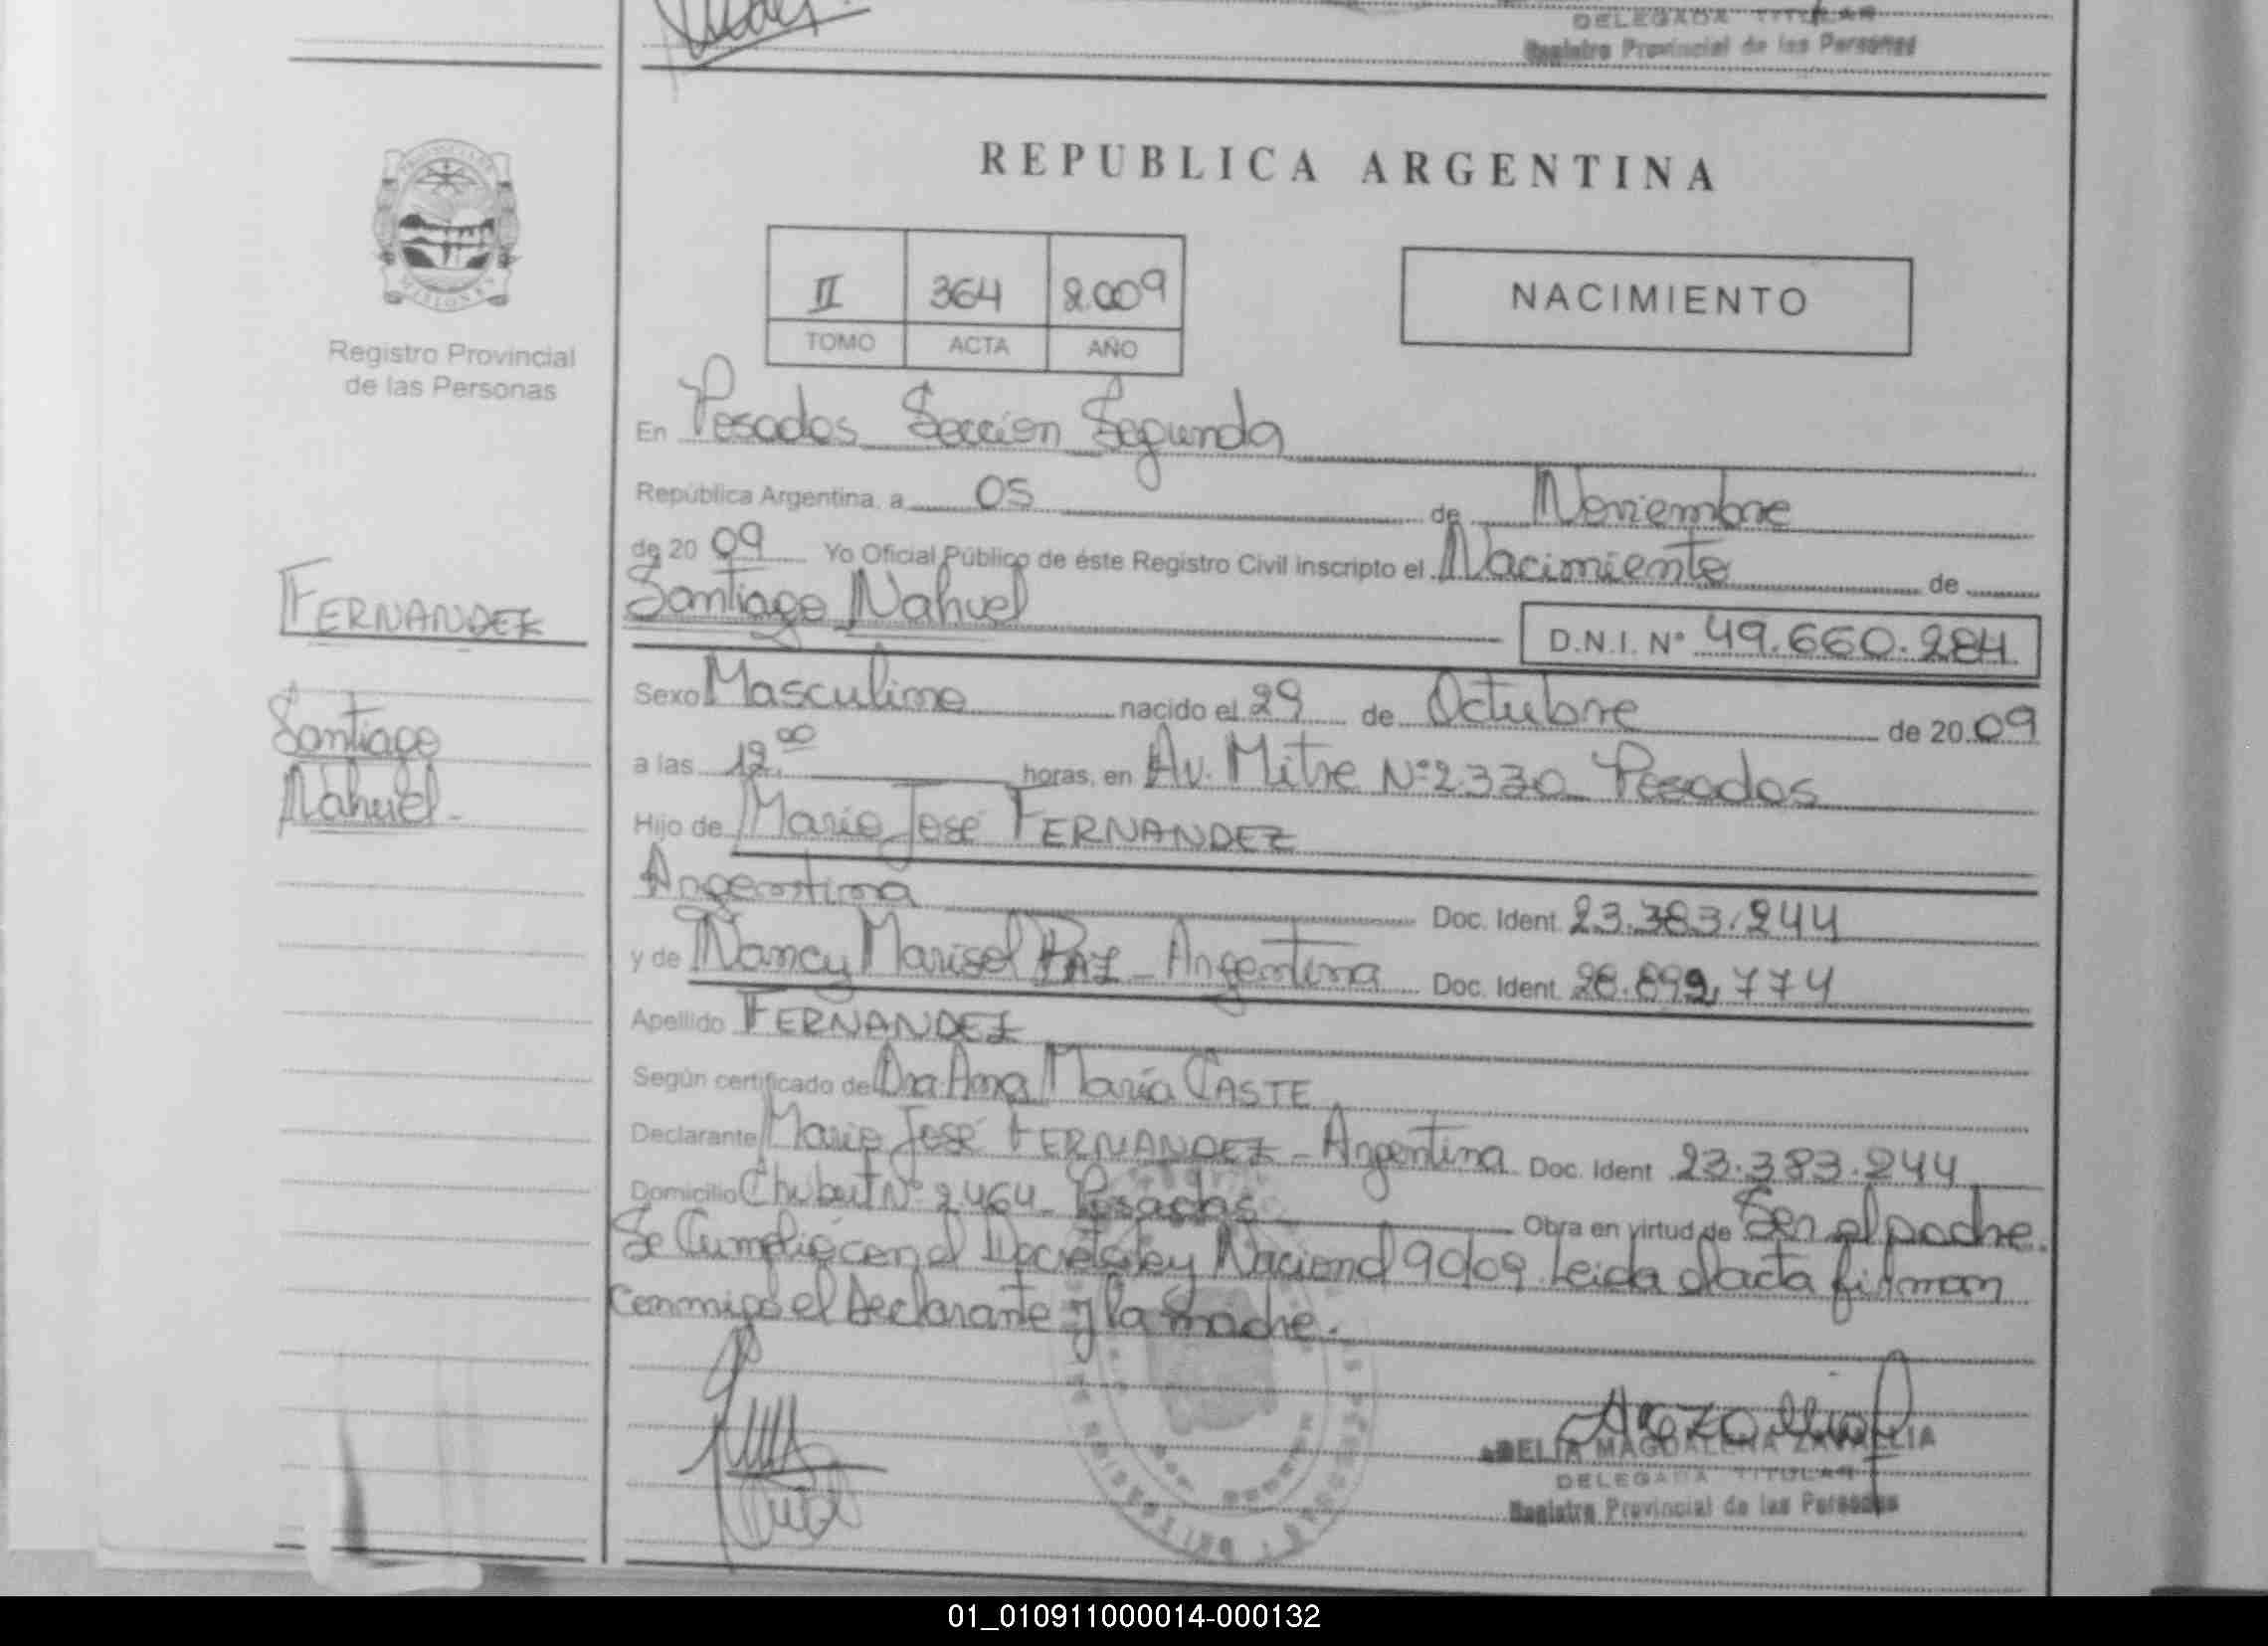 DELEGADA TITULAR
Registro Provincial de las Personas
REPUBLICA ARGENTINA
II 364 2.009
TOMO ACTA AÑO
NACIMIENTO
MISIONES
Registro Provincial
de las Personas
FERNANDEZ
Santiago
Nahuel.-
En Posadas Sección Segunda
República Argentina, a 05 de Noviembre
de 20 09 Yo Oficial Público de éste Registro Civil inscripto el Nacimiento de
Santiago Nahuel
D.N.I. N° 49.660.284
Sexo Masculino nacido el 29 de Octubre de 20 09
a las 12.00 horas, en Av. Mitre N° 2330 Posadas
Hijo de Mario José FERNANDEZ
Argentina Doc. Ident. 23.383.244
y de Nancy Marisol PAZ - Argentina Doc. Ident. 28.892.774
Apellido FERNANDEZ
Según certificado de Dra. Ana María CASTE
Declarante Mario José FERNANDEZ - Argentina Doc. Ident. 23.383.244
Domicilio Chubut N° 2464 - Posadas Obra en virtud de Ser el padre.
Se Cumplió con el Decreto ley Nacional 9009. Leida el acta firman
conmigo el Declarante y la madre.
ADELIA MAGDALENA ZAVALLIA
DELEGADA TITULAR
Registro Provincial de las Personas
01_010911000014-000132